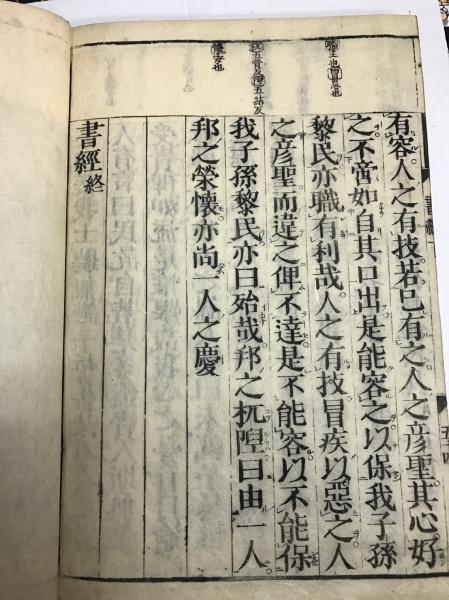 主也冒忌也
杌五骨反隉五結反
懷安也
有容人之有技若已有之人之彦聖其心好
之不啻如自其口出是能容之以保我子孫
黎民亦職有利哉人之有技冒疾以惡之人
之彦聖而違之俾不達是不能容以不能保
我子孫黎民亦曰殆哉邦之杌隉曰由一人
邦之榮懷亦尚一人之慶
書經終